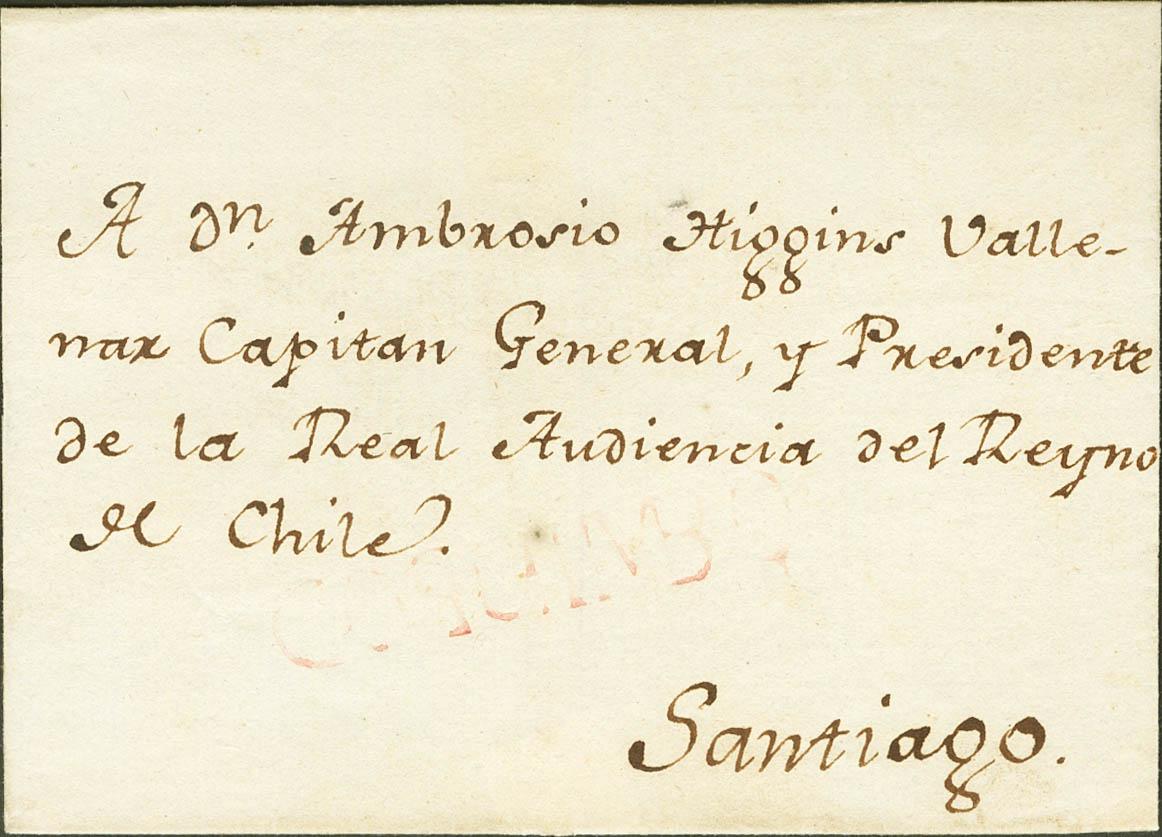 A Dn. Ambrosio Higgins Valle-
nar Capitan General, y Presidente
de la Real Audiencia del Reyno
de Chile.
Santiago.